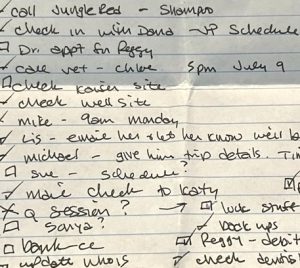 call Jungle Red - Shampoo
check in with Dana - VP Schedule
Dr. appt for Peggy
call vet - Chloe 5pm July 9
check Kaiser site
check well site
mike - 9am monday
Lis - email her & let her know we'll be
michael - give him trip details.
sue - schedule?
mail check to Katy
Q session? → luck stuff
Sonya? back ups
bank - cc Peggy - debit
update whois check dentis